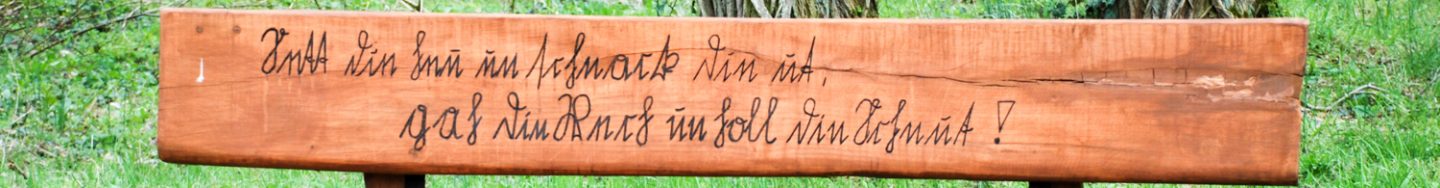 Sett din heu un schnack din ut,
gah din Wech un holl din Schnut!